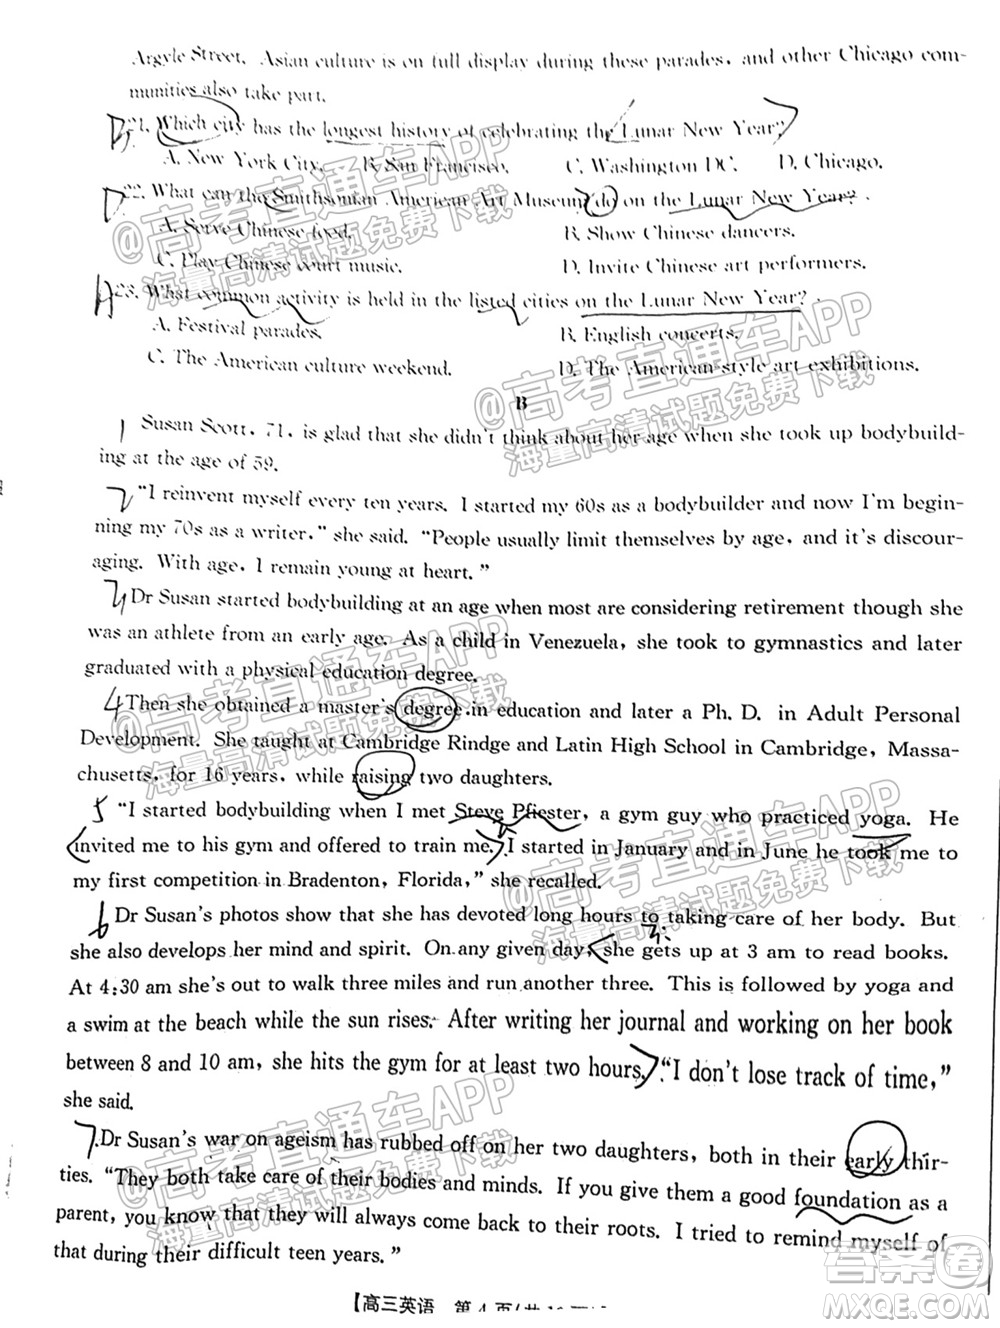 Argyle Street. Asian culture is on full display during these parades, and other Chicago com-
munities also take part.
21. Which city has the longest history of celebrating the Lunar New Year?
A. New York City. B. San Francisco. C. Washington DC. D. Chicago.
22. What can the Smithsonian American Art Museum do on the Lunar New Year?
A. Serve Chinese food. B. Show Chinese dancers.
C. Play Chinese court music. D. Invite Chinese art performers.
23. What common activity is held in the listed cities on the Lunar New Year?
A. Festival parades. B. English concerts.
C. The American culture weekend. D. The American-style art exhibitions.
B
Susan Scott, 71, is glad that she didn't think about her age when she took up bodybuild-
ing at the age of 59.
"I reinvent myself every ten years. I started my 60s as a bodybuilder and now I'm begin-
ning my 70s as a writer," she said. "People usually limit themselves by age, and it's discour-
aging. With age, I remain young at heart."
Dr Susan started bodybuilding at an age when most are considering retirement though she
was an athlete from an early age. As a child in Venezuela, she took to gymnastics and later
graduated with a physical education degree.
Then she obtained a master's degree in education and later a Ph. D. in Adult Personal
Development. She taught at Cambridge Rindge and Latin High School in Cambridge, Massa-
chusetts, for 16 years, while raising two daughters.
"I started bodybuilding when I met Steve Pfiester, a gym guy who practiced yoga. He
invited me to his gym and offered to train me. I started in January and in June he took me to
my first competition in Bradenton, Florida," she recalled.
Dr Susan's photos show that she has devoted long hours to taking care of her body. But
she also develops her mind and spirit. On any given day, she gets up at 3 am to read books.
At 4:30 am she's out to walk three miles and run another three. This is followed by yoga and
a swim at the beach while the sun rises. After writing her journal and working on her book
between 8 and 10 am, she hits the gym for at least two hours. "I don't lose track of time,"
she said.
Dr Susan's war on ageism has rubbed off on her two daughters, both in their early thir-
ties. "They both take care of their bodies and minds. If you give them a good foundation as a
parent, you know that they will always come back to their roots. I tried to remind myself of
that during their difficult teen years."
【高三英语 第 4 页
@高考直通车APP
海量高清试题免费下载
@高考直通车APP
海量高清试题免费下载
@高考直通车APP
海量高清试题免费下载
@高考直通车APP
海量高清试题免费下载
@高考直通车APP
海量高清试题免费下载
答案圈
MXQE.COM